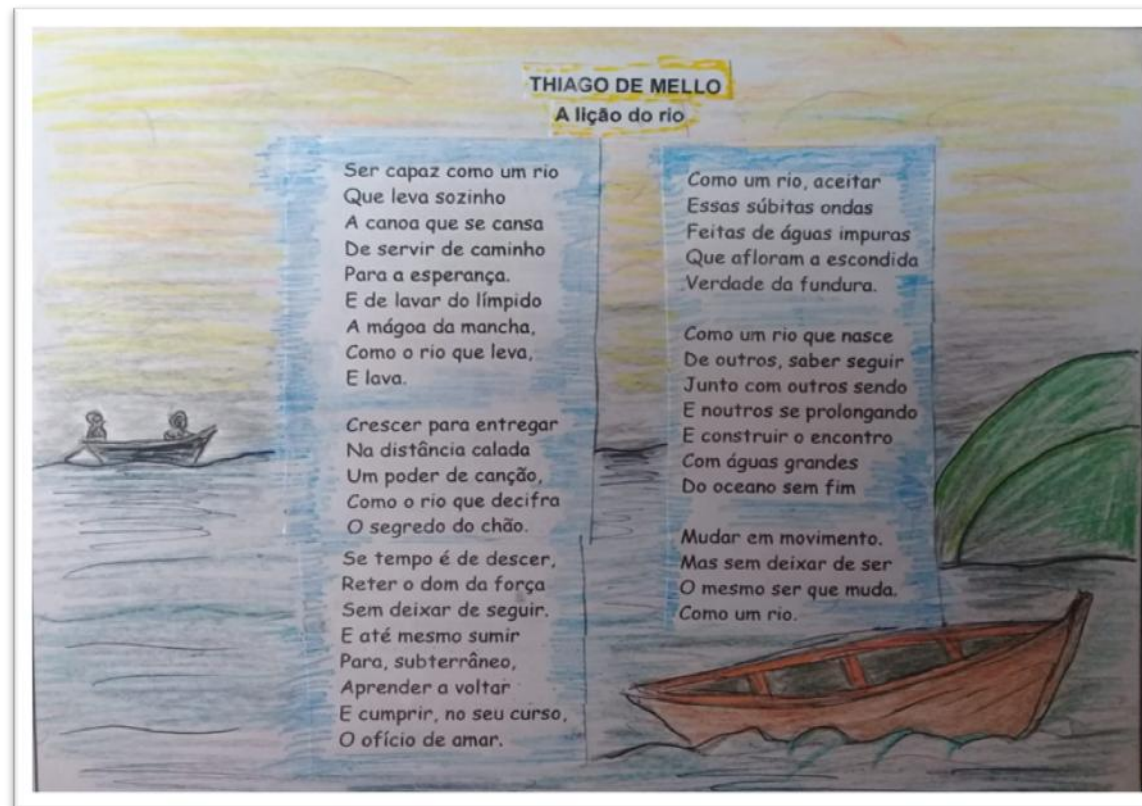 THIAGO DE MELLO
A lição do rio
Ser capaz como um rio
Que leva sozinho
A canoa que se cansa
De servir de caminho
Para a esperança.
E de lavar do límpido
A mágoa da mancha,
Como o rio que leva,
E lava.
Crescer para entregar
Na distância calada
Um poder de canção,
Como o rio que decifra
O segredo do chão.
Se tempo é de descer,
Reter o dom da força
Sem deixar de seguir.
E até mesmo sumir
Para, subterrâneo,
Aprender a voltar
E cumprir, no seu curso,
O ofício de amar.
Como um rio, aceitar
Essas súbitas ondas
Feitas de águas impuras
Que afloram a escondida
Verdade da fundura.
Como um rio que nasce
De outros, saber seguir
Junto com outros sendo
E noutros se prolongando
E construir o encontro
Com águas grandes
Do oceano sem fim
Mudar em movimento.
Mas sem deixar de ser
O mesmo ser que muda.
Como um rio.